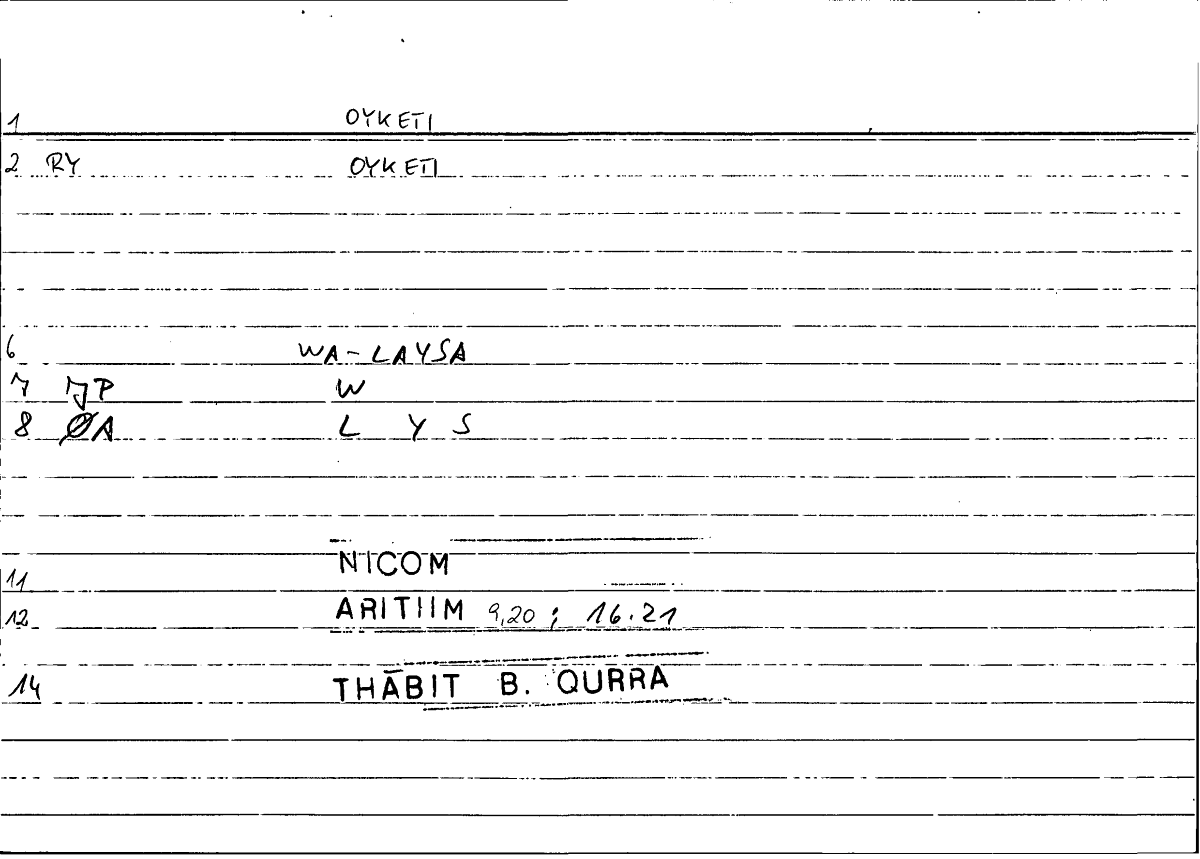 1 OYKETI
2 RY OYKETI
6 WA-LAYSA
7 JP W
8 ØA L Y S
NICOM
11
12 ARITHM 9,20 ; 16.21
14 THĀBIT B. QURRA